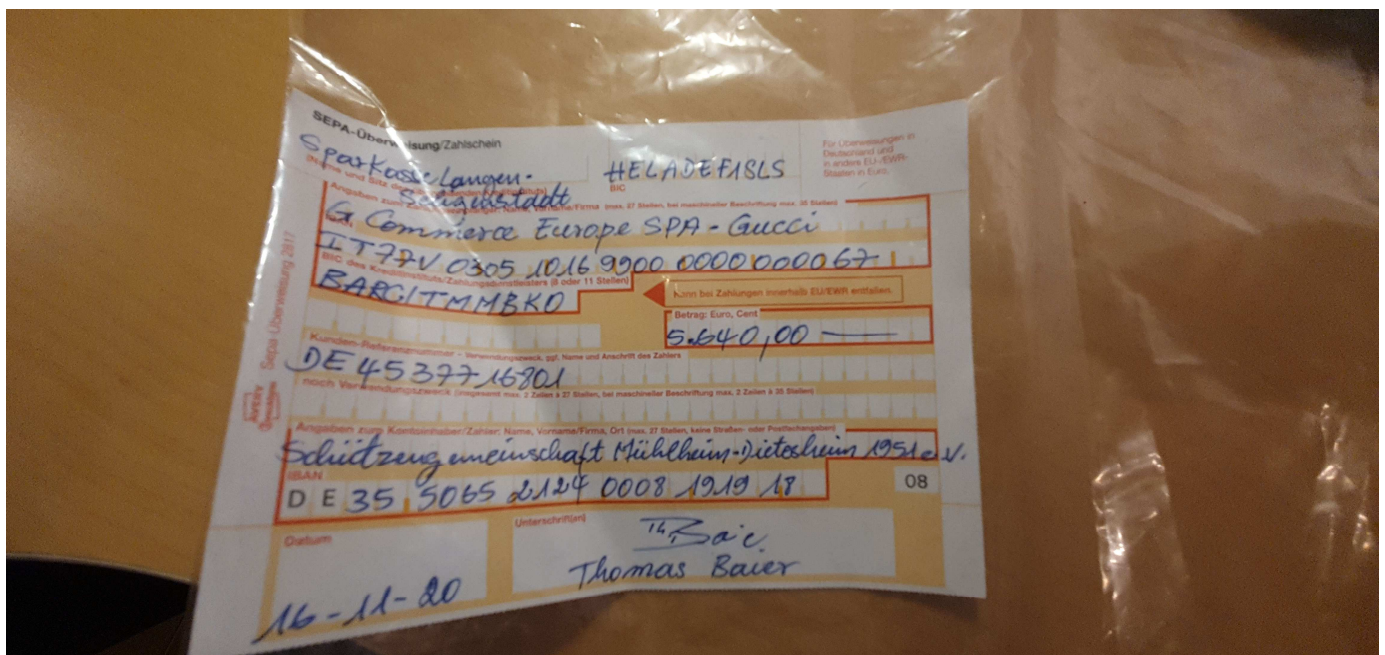 SEPA-Überweisung/Zahlschein
Für Überweisungen in
Deutschland und
in andere EU-/EWR-
Staaten in Euro.
Sparkasse Langen-
Seligenstadt
HELADEF1SLS
BIC
Angaben zum Zahlungsempfänger: Name, Vorname/Firma (max. 27 Stellen, bei maschineller Beschriftung max. 35 Stellen)
G Commerce Europe SPA - Gucci
IBAN
IT77V 0305 1016 9900 0000 0000 067
BIC des Kreditinstituts/Zahlungsdienstleisters (8 oder 11 Stellen)
BARCITMMBKO
Kann bei Zahlungen innerhalb EU/EWR entfallen.
Betrag: Euro, Cent
5.640,00
Kunden-Referenznummer - Verwendungszweck, ggf. Name und Anschrift des Zahlers
DE4537716801
noch Verwendungszweck (insgesamt max. 2 Zeilen à 27 Stellen, bei maschineller Beschriftung max. 2 Zeilen à 35 Stellen)
Angaben zum Kontoinhaber/Zahler: Name, Vorname/Firma, Ort (max. 27 Stellen, keine Straßen- oder Postfachangaben)
Schützengemeinschaft Mühlheim-Dietesheim 1951 e.V.
IBAN
DE 35 5065 2124 0008 1919 18
08
Datum
Unterschrift(en)
16-11-20
Thomas Baier
Sepa-Überweisung 2817
AVERY
Zweckform